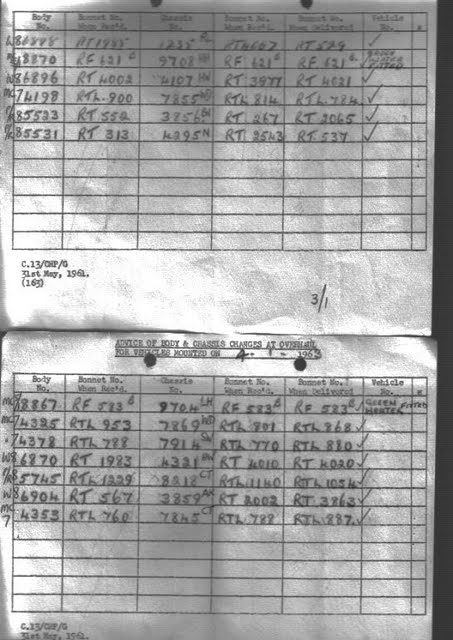 Body No. Bonnet No. When Rec'd. Chassis No. Bonnet No. When Rec'd. Bonnet No. When Delivered Vehicle No.
W8 RT 1985 1235 RT 4667 RT 529 ✓
8870 RF 621 B 9708 RF 621 B RF 621 B ✓ FITTED
W8 6896 RT 4002 4107 HW RT 3977 RT 4021 ✓
MC 7 4198 RTL 900 7855 RTL 814 RTL 784 ✓
P/R 8 5523 RT 552 3856 RT 267 RT 2065 ✓
P/R 8 5531 RT 313 4295 N RT 2543 RT 537 ✓
C.13/CHP/G
31st May, 1961.
(163)
3/1
ADVICE OF BODY & CHASSIS CHANGES AT OVERHAUL
FOR VEHICLES MOUNTED ON 4 - 1 - 1963
Body No. Bonnet No. When Rec'd. Chassis No. Bonnet No. When Rec'd. Bonnet No. When Delivered Vehicle No.
MC 8867 RF 583 B 9704 LH RF 583 B RF 583 B ✓ GREEN HEATER FITTED
MC 7 4325 RTL 953 7869 RTL 801 RTL 868 ✓
7 4378 RTL 788 7914 RTL 770 RTL 880 ✓
W8 6870 RT 1983 4321 RT 4010 RT 4020 ✓
P/R 8 5745 RTL 1229 8218 CT RTL 1140 RTL 1054 ✓
W8 6904 RT 567 3859 AK RT 2002 RT 3863 ✓
MC 7 4353 RTL 760 7845 CT RTL 788 RTL 887 ✓
C.13/CHP/G
31st May, 1961.